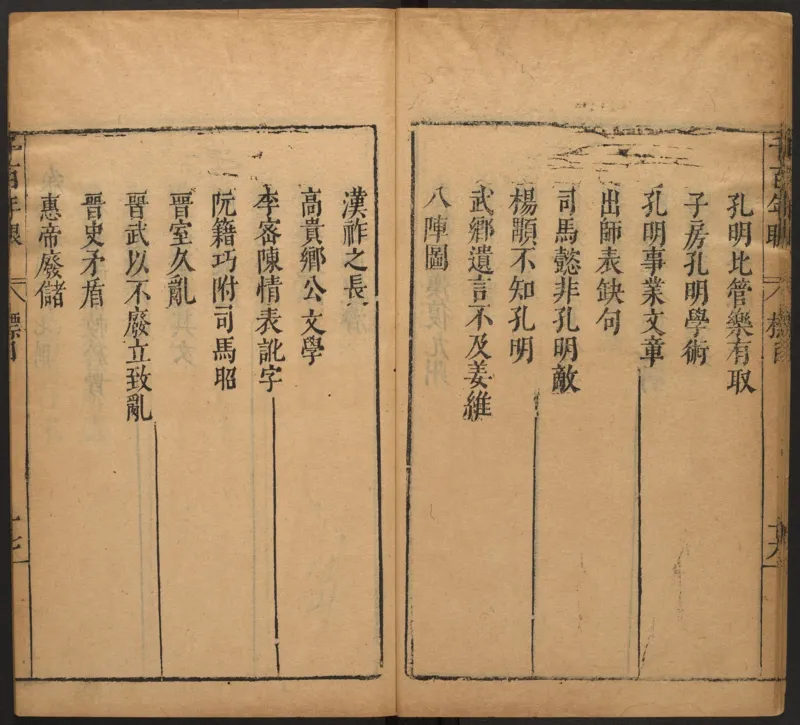 孔明比管樂有取
子房孔明學術
孔明事業文章
出師表缺句
司馬懿非孔明敵
楊顒不知孔明
武鄉遺言不及姜維
八陣圖
漢祚之長
高貴鄉公文學
李密陳情表訛字
阮籍巧附司馬昭
晉室久亂
晉武以不廢立致亂
晉史矛盾
惠帝廢儲